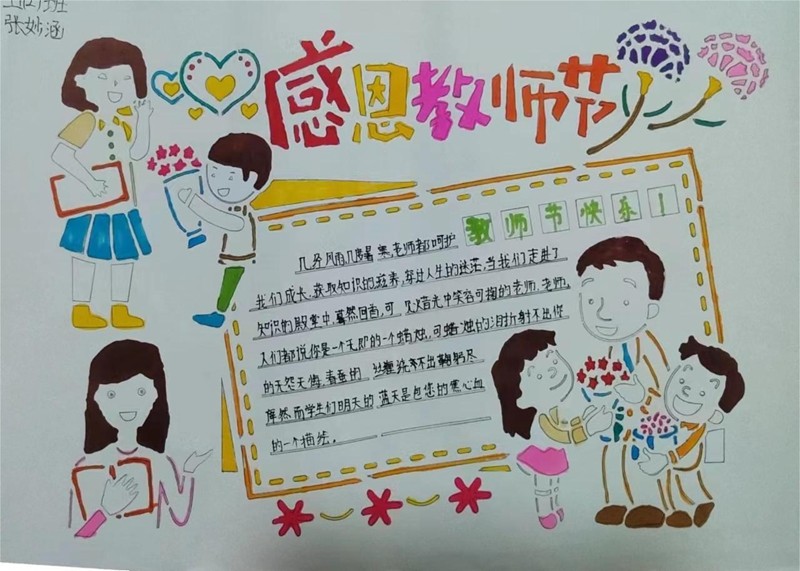 班
张妙涵
感恩教师节
教师节快乐！
几多风雨几度暑寒,老师都呵护
我们成长、获取知识的拉素,穿过人生的迷茫,当我们走进了
知识的殿堂中,蓦然回首,可见烛光中笑容可掬的老师,老师,
人们都说你是一个无即的一个蜡烛,可蜡烛的泪折射不出你
的无怨无悔,春蚕的丝缠绕不出鞠躬尽
岸然而学生们明天的蓝天是也您的寒心血
的一个描绘。